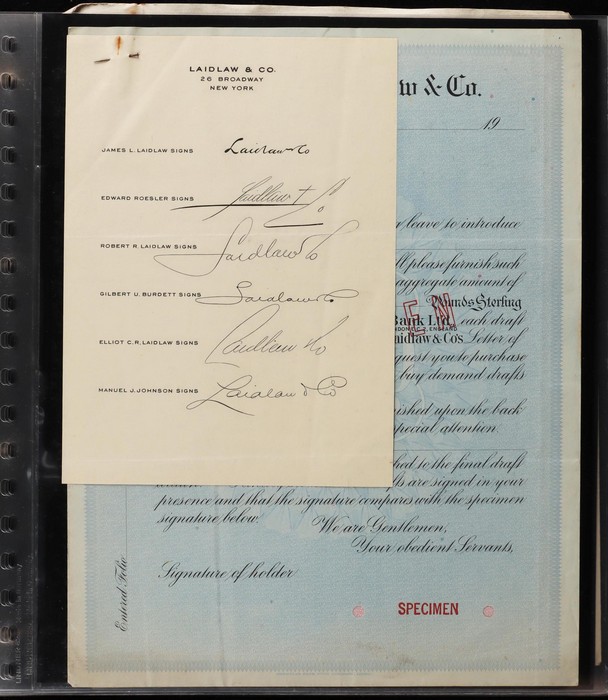 LAIDLAW & CO.
26 BROADWAY
NEW YORK
JAMES L. LAIDLAW SIGNS Laidlaw & Co
EDWARD ROESLER SIGNS Laidlaw & Co
ROBERT R. LAIDLAW SIGNS Laidlaw & Co
GILBERT U. BURDETT SIGNS Laidlaw & Co
ELLIOT C. R. LAIDLAW SIGNS Laidlaw & Co
MANUEL J. JOHNSON SIGNS Laidlaw & Co
w & Co.
19
leave to introduce
ll please furnish such
aggregate amount of
Pounds Sterling
EN
Bank Ltd. each draft
NDON E.C. 2, ENGLAND
aidlaw & Co's Letter of
quest you to purchase
buy demand drafts
ished upon the back
pecial attention.
hed to the final draft
fts are signed in your
presence and that the signature compares with the specimen
signature below.
We are Gentlemen,
Your obedient Servants,
Signature of holder
Entered Folio
SPECIMEN